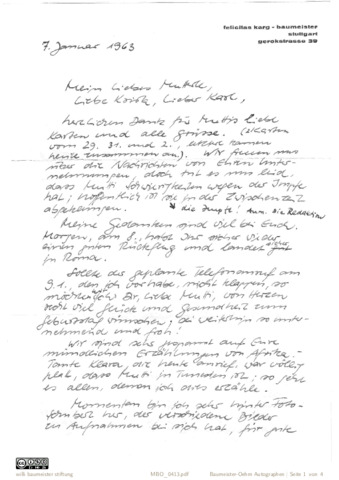 felicitas karg - baumeister
stuttgart
gerokstrasse 39
7. Januar 1963
Mein Liebes Muttile,
Liebe Krista, Lieber Karl,
herzlichen Dank für Muttis liebe
Karten und alle Grüsse. (2 Karten
vom 29. 31. und 2.,
heute zusammen an). Wir freuen uns
über die Nachrichten von Euren Unter-
nehmungen, doch tut es uns leid,
dass Mutti Schwierigkeiten wegen der Impfe
hat; hoffentlich ist sie in der Zwischenzeit
* die Impfe! Anm. die Redaktion
Meine Gedanken sind viel bei Euch.
Morgen, am 8., habt Ihr sicher wieder
einen guten Rückflug und landet sicher
in Roma.
Sollte das geplante Telefonanruf am
9.1., den ich vorhabe, nicht klappen, so
möchte ich Dir, liebe Mutti, von Herzen
recht viel Glück und Gesundheit zum
Geburtstag wünschen; bei weiterhin so unter-
nehmend und froh!
Wir sind sehr gespannt auf Eure
mündlichen Erzählungen von Afrika.
Tante Klara, die heute anrief, war völlig
platt, dass Mutti in Tunesien ist; so geht
es allen, denen ich dies erzähle.
Momentan bin ich sehr hinter Foto-
her, der verschiedene Bilder
zu Aufnahmen bei sich hat, für gute
willi baumeister stiftung
MBO_0413.pdf
Baumeister-Oehm Autographen : Seite 1 von 4